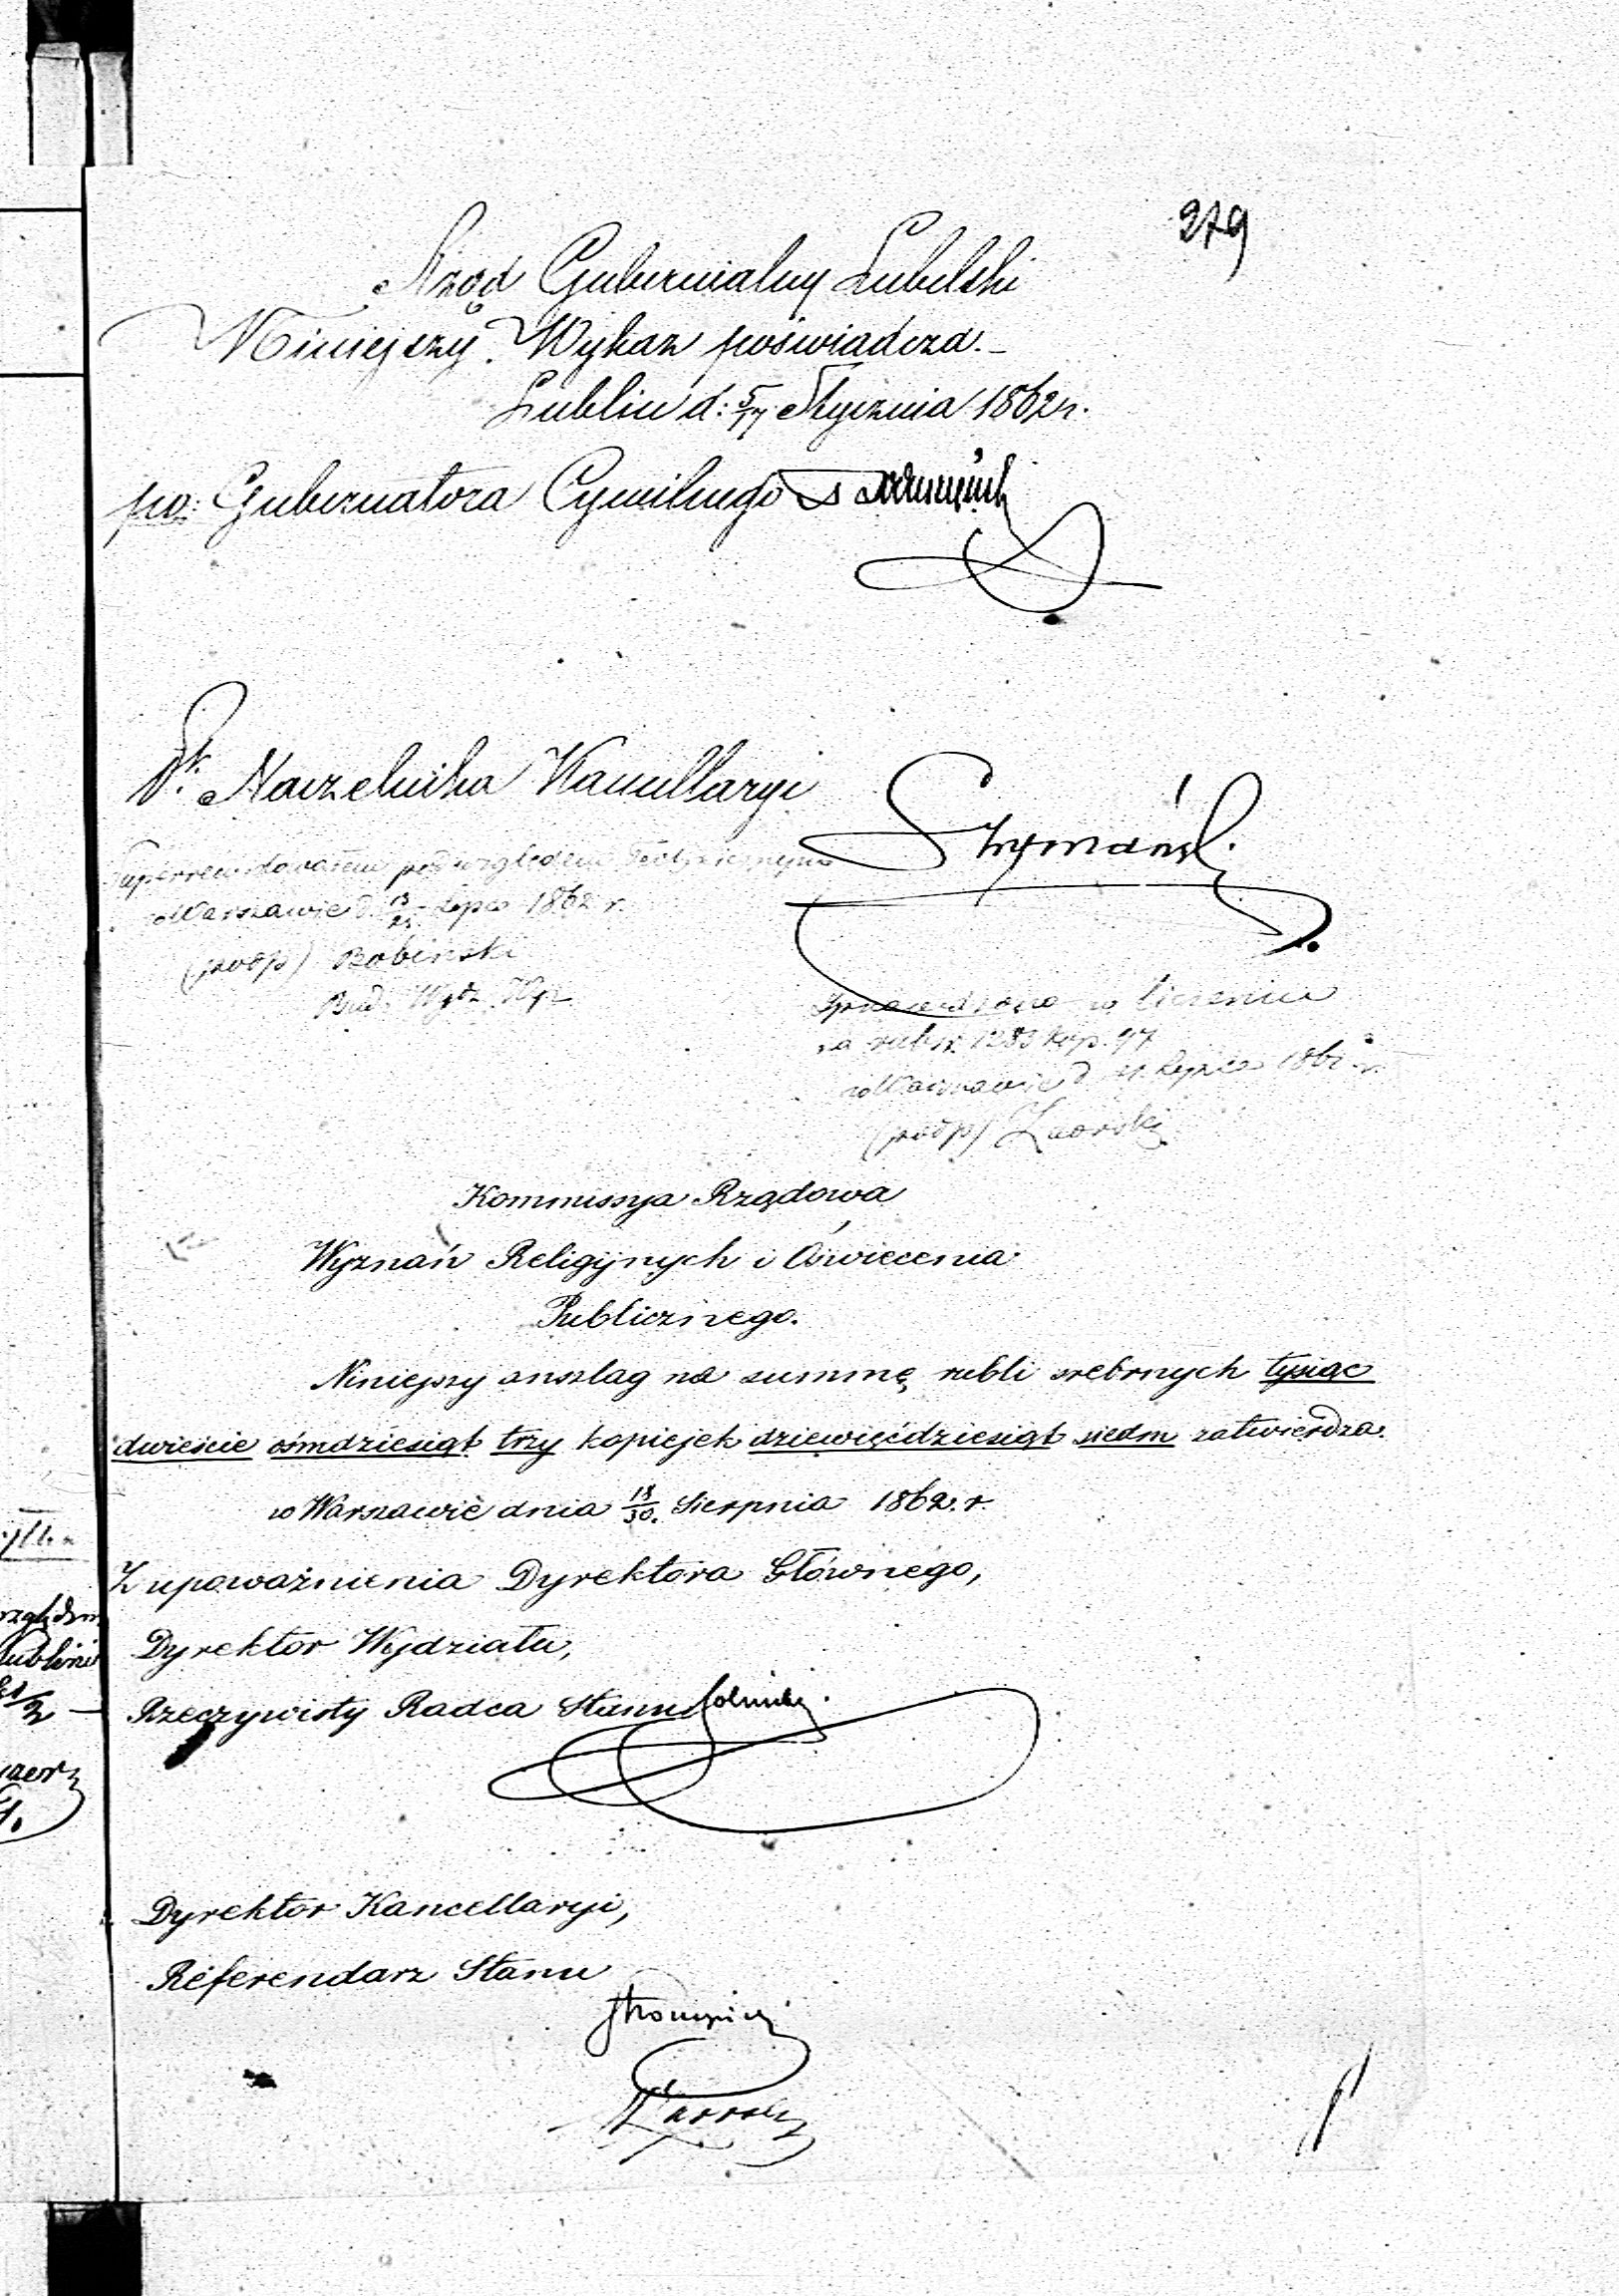 279
Rząd Gubernialny Lubelski
Niniejszy Wykaz poświadcza.-
Lublin d: 5/17 Stycznia 1862 r.
po: Gubernatora Cywilnego
Naczelnika Kancellaryi
Szymański
Superrewidowałem pod względem Technicznym
w Warszawie d. 13/25 Lipca 1862 r.
(podp) Bobiński
Bud.
Sprawdzono w liczeniu
na rubsr. 1283 kop. 97
w Warszawie d Lipca 186
(podp) Zaorski
Kommissya Rządowa
Wyznań Religijnych i Oświecenia
Publicznego.
Niniejszy anszlag na summę rubli srebrnych tysiąc
dwieście ośmdziesiąt trzy kopiejek dziewięćdziesiąt siedm zatwierdza.
w Warszawie dnia 18/30. Sierpnia 1862. r.
Z upoważnienia Dyrektora Głównego,
Dyrektor Wydziału,
Rzeczywisty Radca Stanu
Dyrektor Kancellaryi,
Referendarz Stanu